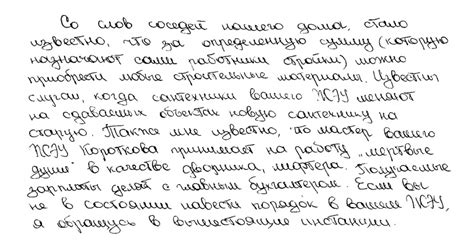 Со слов соседей нашего дома, стало
известно, что за определенную сумму (которую
назначают сами работники стройки) можно
приобрести любые строительные материалы. Известны
случаи, когда сантехники вашего ЖЭУ меняют
на сдаваемых объектах новую сантехнику на
старую. Также мне известно, что мастер вашего
ЖЭУ Короткова принимает на работу „мертвые
души" в качестве дворника, маляра. Получаемые
зарплаты делят с главным бухгалтером. Если вы
не в состоянии навести порядок в вашем ЖЭУ,
я обращусь в вышестоящие инстанции.